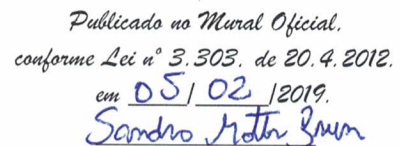 Publicado no Mural Oficial,
conforme Lei nº 3.303. de 20.4.2012.
em 05/02/2019.
Sandro